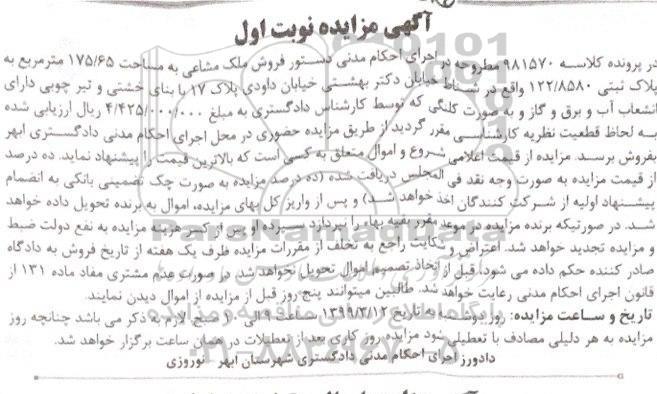 آگهی مزایده نوبت اول
در پرونده کلاسه ۹۸۱۵۷۰ مطروحه در اجرای احکام مدنی دستور فروش ملک مشاعی به مساحت ۱۷۵/۶۵ مترمربع به
پلاک ثبتی ۱۲۲/۸۵۸۰ واقع در شناط خیابان دکتر بهشتی خیابان داودی پلاک ۱۷ با بنای خشتی و تیر چوبی دارای
انشعاب آب و برق و گاز و به صورت کلنگی که توسط کارشناس دادگستری به مبلغ ۴/۴۲۵/۰۰۰/۰۰۰ ریال ارزیابی شده
به لحاظ قطعیت نظریه کارشناسی مقرر گردید از طریق مزایده حضوری در محل اجرای احکام مدنی دادگستری ابهر
بفروش برسد. مزایده از قیمت اعلامی شروع و اموال متعلق به کسی است که بالاترین قیمت را پیشنهاد نماید. ده درصد
از قیمت مزایده به صورت وجه نقد فی المجلس دریافت شده (ده درصد مزایده به صورت چک تضمینی بانکی به انضمام
پیشنهاد اولیه از شرکت کنندگان اخذ خواهد شد) و پس از واریز کل بهای مزایده، اموال به برنده تحویل داده خواهد
شد. در صورتیکه برنده مزایده در موعد مقرر بقیه بهاء را نپردازد سپرده او پس از کسر هزینه مزایده به نفع دولت ضبط
و مزایده تجدید خواهد شد. اعتراض و شکایت راجع به تخلف از مقررات مزایده ظرف یک هفته از تاریخ فروش به دادگاه
صادر کننده حکم داده می شود. قبل از اتخاذ تصمیم، اموال تحویل نخواهد شد. در صورت عدم مشتری مفاد ماده ۱۳۱ از
قانون اجرای احکام مدنی رعایت خواهد شد. طالبین میتوانند پنج روز قبل از مزایده از اموال دیدن نمایند.
تاریخ و ساعت مزایده: روز دوشنبه به تاریخ ۱۳۹۹/۳/۱۲ ساعت ۹ الی ۱۰ صبح. لازم به ذکر می باشد چنانچه روز
مزایده به هر دلیلی مصادف با تعطیلی شود مزایده روز کاری بعد از تعطیلات در همان ساعت برگزار خواهد شد.
دادورز اجرای احکام مدنی دادگستری شهرستان ابهر - نوروزی